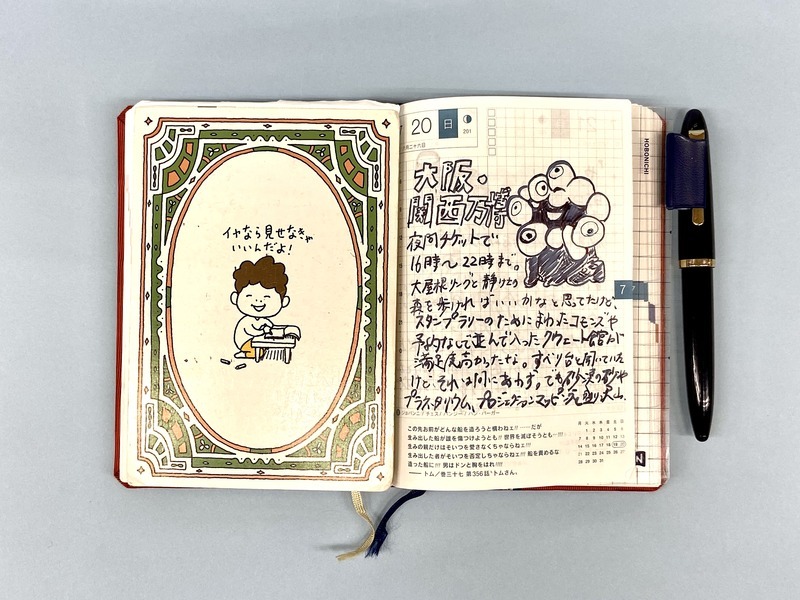 イヤなら見せなきゃ
いいんだよ!
20 日 201
大阪。
関西万博
夜間チケットで
16時〜22時まで。
大屋根リングと静けさの
森を歩ければいいかなと思ってたけど、
スタンプラリーのためにまわったコモンズや
予約なしで並んで入ったクウェート館が
満足度高かったなぁ。すべり台と聞いていた
けど、それは間にあわず。でも砂漠の砂や
プラネタリウム、プロジェクションマッピング、盛り沢山。
この先お前がどんな船を造ろうと構わねェ!! ……だが
生み出した船が誰を傷つけようとも!! 世界を滅ぼそうとも…!!!
生みの親だけはそいつを愛さなくちゃならねェ!!!
生み出した者がそいつを否定しちゃならねェ!!! 船を責めるな
造った船に!!! 男はドンと胸をはれ!!!!
—— トム/巻三十七 第356話“トムさん”
月 火 水 木 金 土 日
1 2 3 4 5 6
7 8 9 10 11 12 13
14 15 16 17 18 19 20
21 22 23 24 25 26 27
28 29 30 31
7
7
HOBONICHI